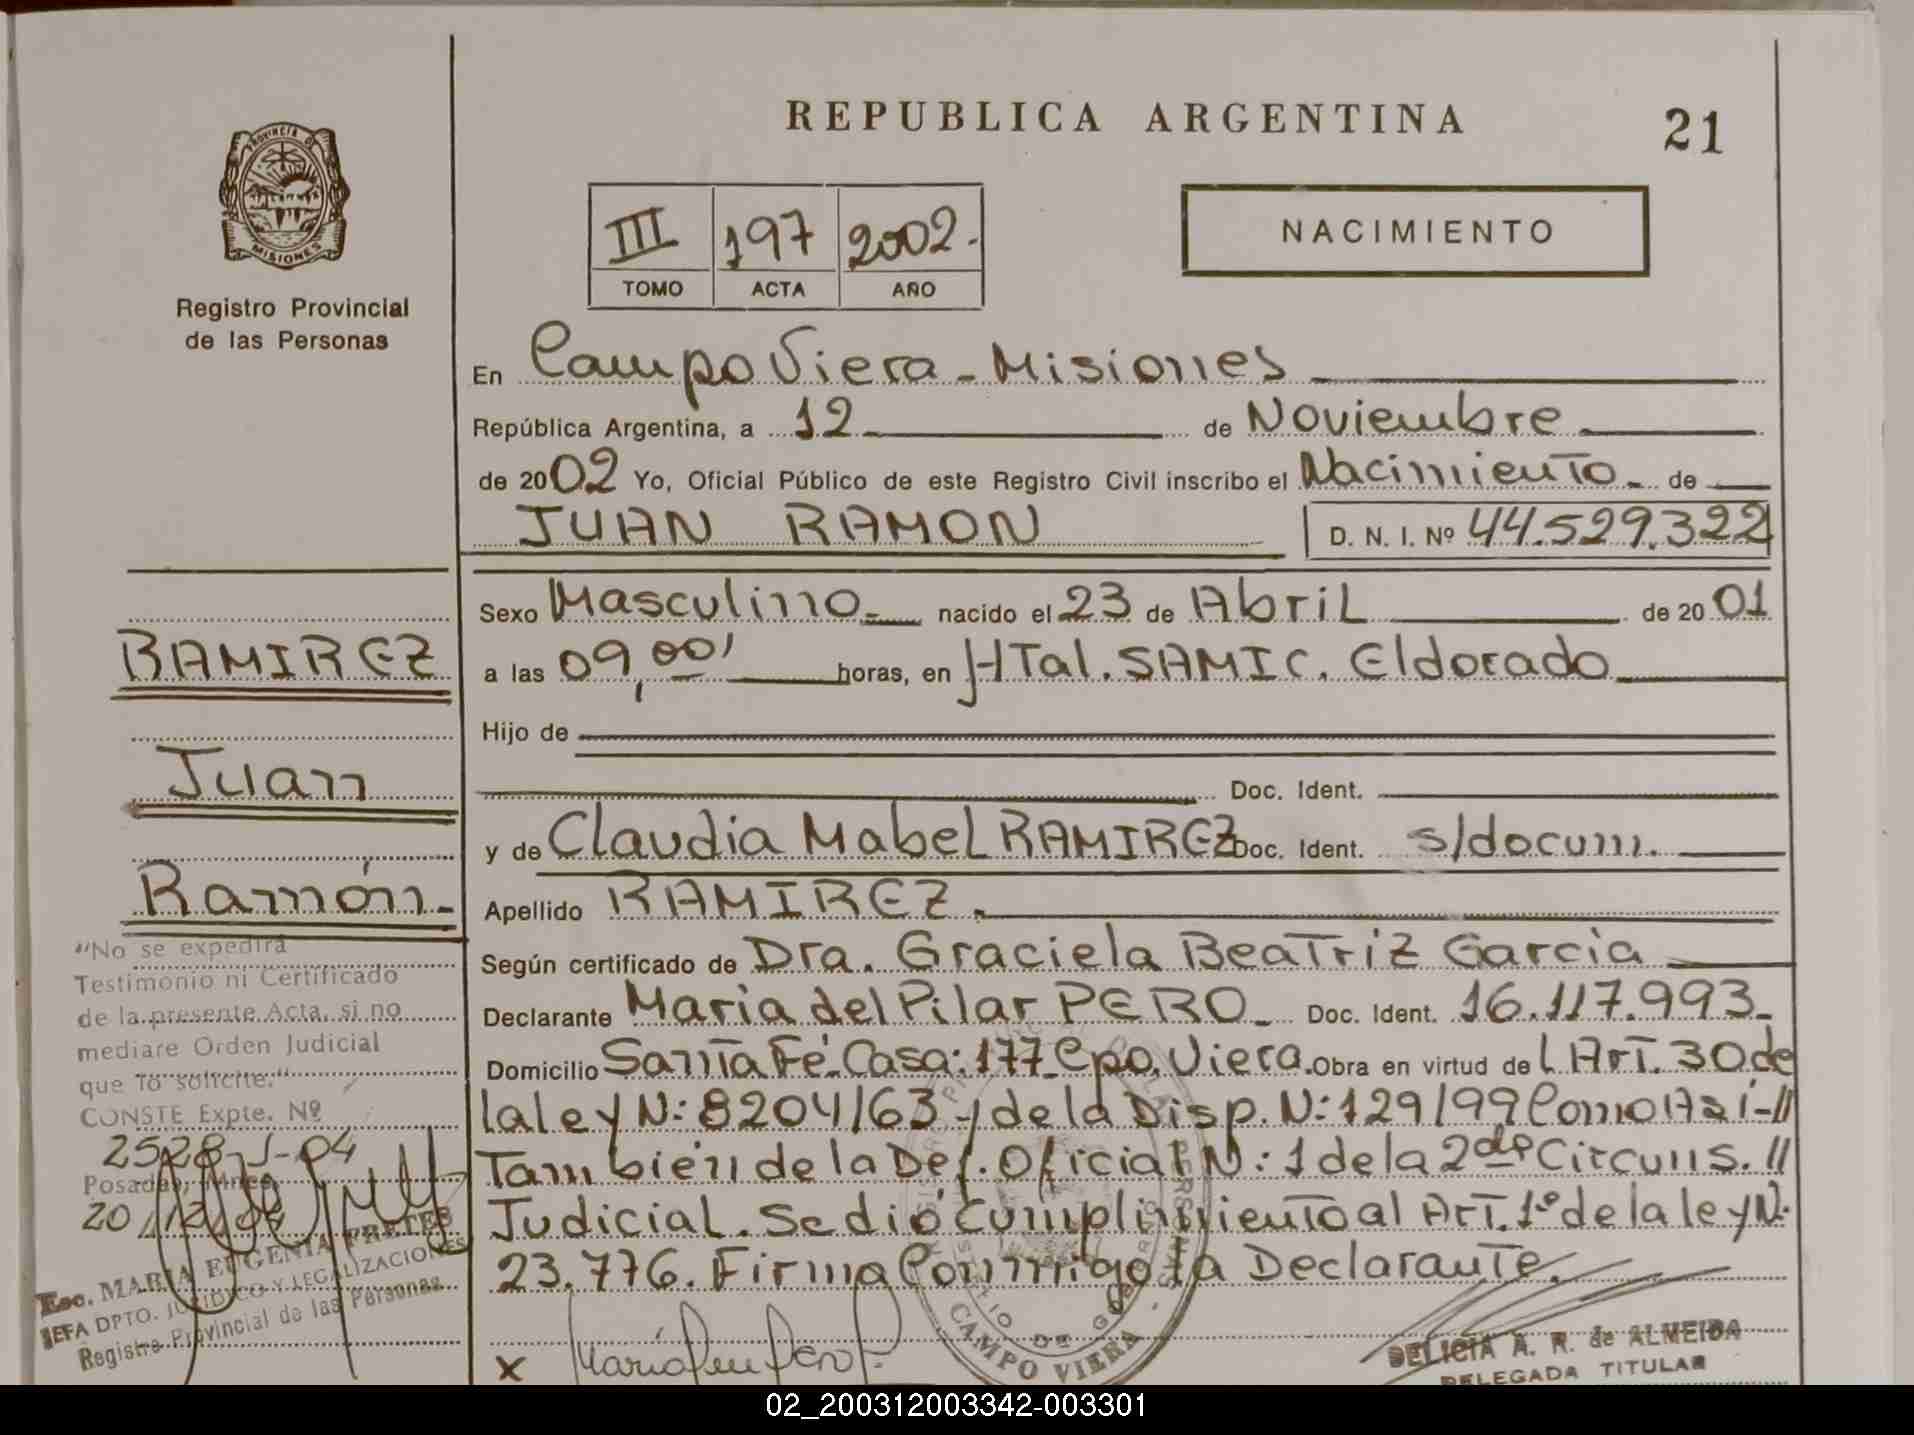 REPUBLICA ARGENTINA
21
PROVINCIA DE
MISIONES
Registro Provincial
de las Personas
III 197 2002.
TOMO ACTA AÑO
NACIMIENTO
En Campo Viera - Misiones
República Argentina, a 12 de Noviembre
de 2002 Yo, Oficial Público de este Registro Civil inscribo el Nacimiento de
JUAN RAMON D. N. I. Nº 44.529.322
Sexo Masculino nacido el 23 de Abril de 2001
a las 09,00' horas, en HTal. SAMIC. Eldorado
Hijo de
Doc. Ident.
y de Claudia Mabel RAMIREZ Doc. Ident. s/docum.
Apellido RAMIREZ.
Según certificado de Dra. Graciela Beatriz Garcia
Declarante Maria del Pilar PERO Doc. Ident. 16.117.993
Domicilio Santa Fé-Casa: 177 Cpo. Viera. Obra en virtud del Art. 30 de
la ley N: 8204/63 y de la Disp. N: 129/99 Como Así-//
También de la Def. Oficial N: 1 de la 2da Circuns. //
Judicial. Se dió cumplimiento al Art. 1º de la ley N:
23.776. Firma Conmigo la Declarante.
RAMIREZ
Juan
Ramón
"No se expedirá
Testimonio ni Certificado
de la presente Acta, si no
mediare Orden Judicial
que lo solicite."
CONSTE Expte. Nº
2528-J-04
Posadas, Mnes.
20/12/04
Esc. MARIA EUGENIA PRETES
JEFA DPTO. JURIDICO Y LEGALIZACIONES
Registro Provincial de las Personas
x
CAMPO VIERA
DELICIA A. R. de ALMEIDA
DELEGADA TITULAR
02_200312003342-003301